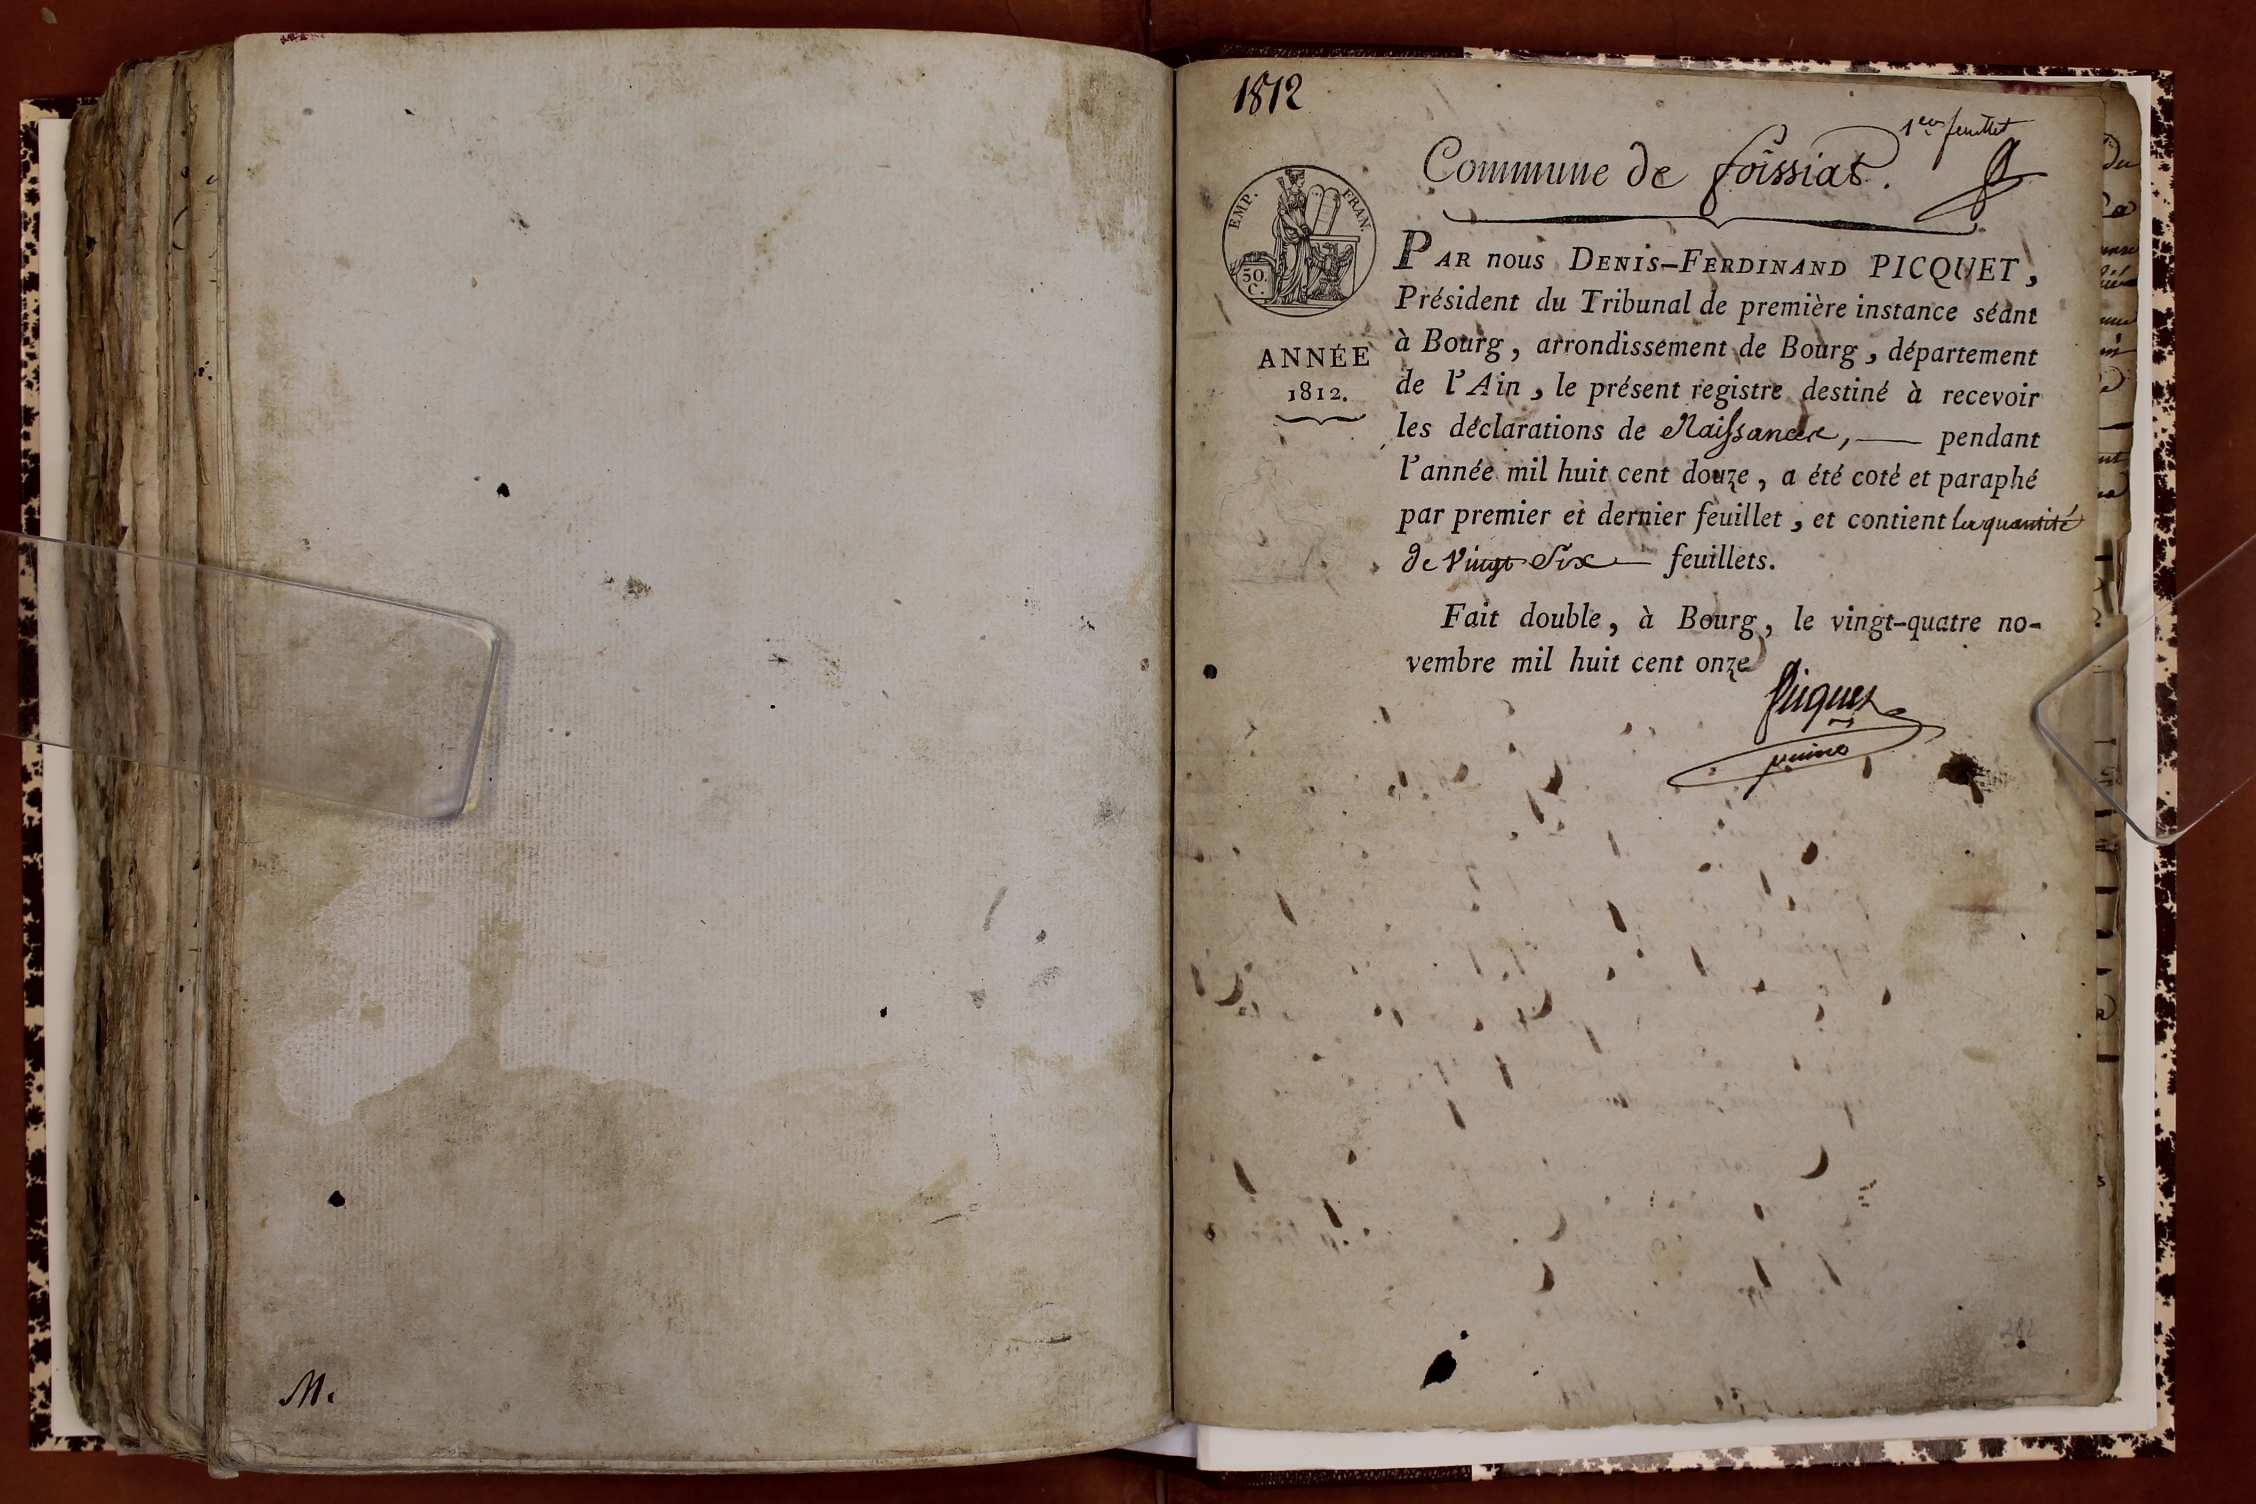 M.
1812
1er feuillet
Commune de foissiat.
EMP. FRAN.
50.
C.
ANNÉE
1812.
PAR nous DENIS-FERDINAND PICQUET,
Président du Tribunal de première instance séant
à Bourg, arrondissement de Bourg, département
de l'Ain, le présent registre destiné à recevoir
les déclarations de Naissances, — pendant
l'année mil huit cent douze, a été coté et paraphé
par premier et dernier feuillet, et contient la quantité
de vingt Six — feuillets.
Fait double, à Bourg, le vingt-quatre no-
vembre mil huit cent onze
Picquet